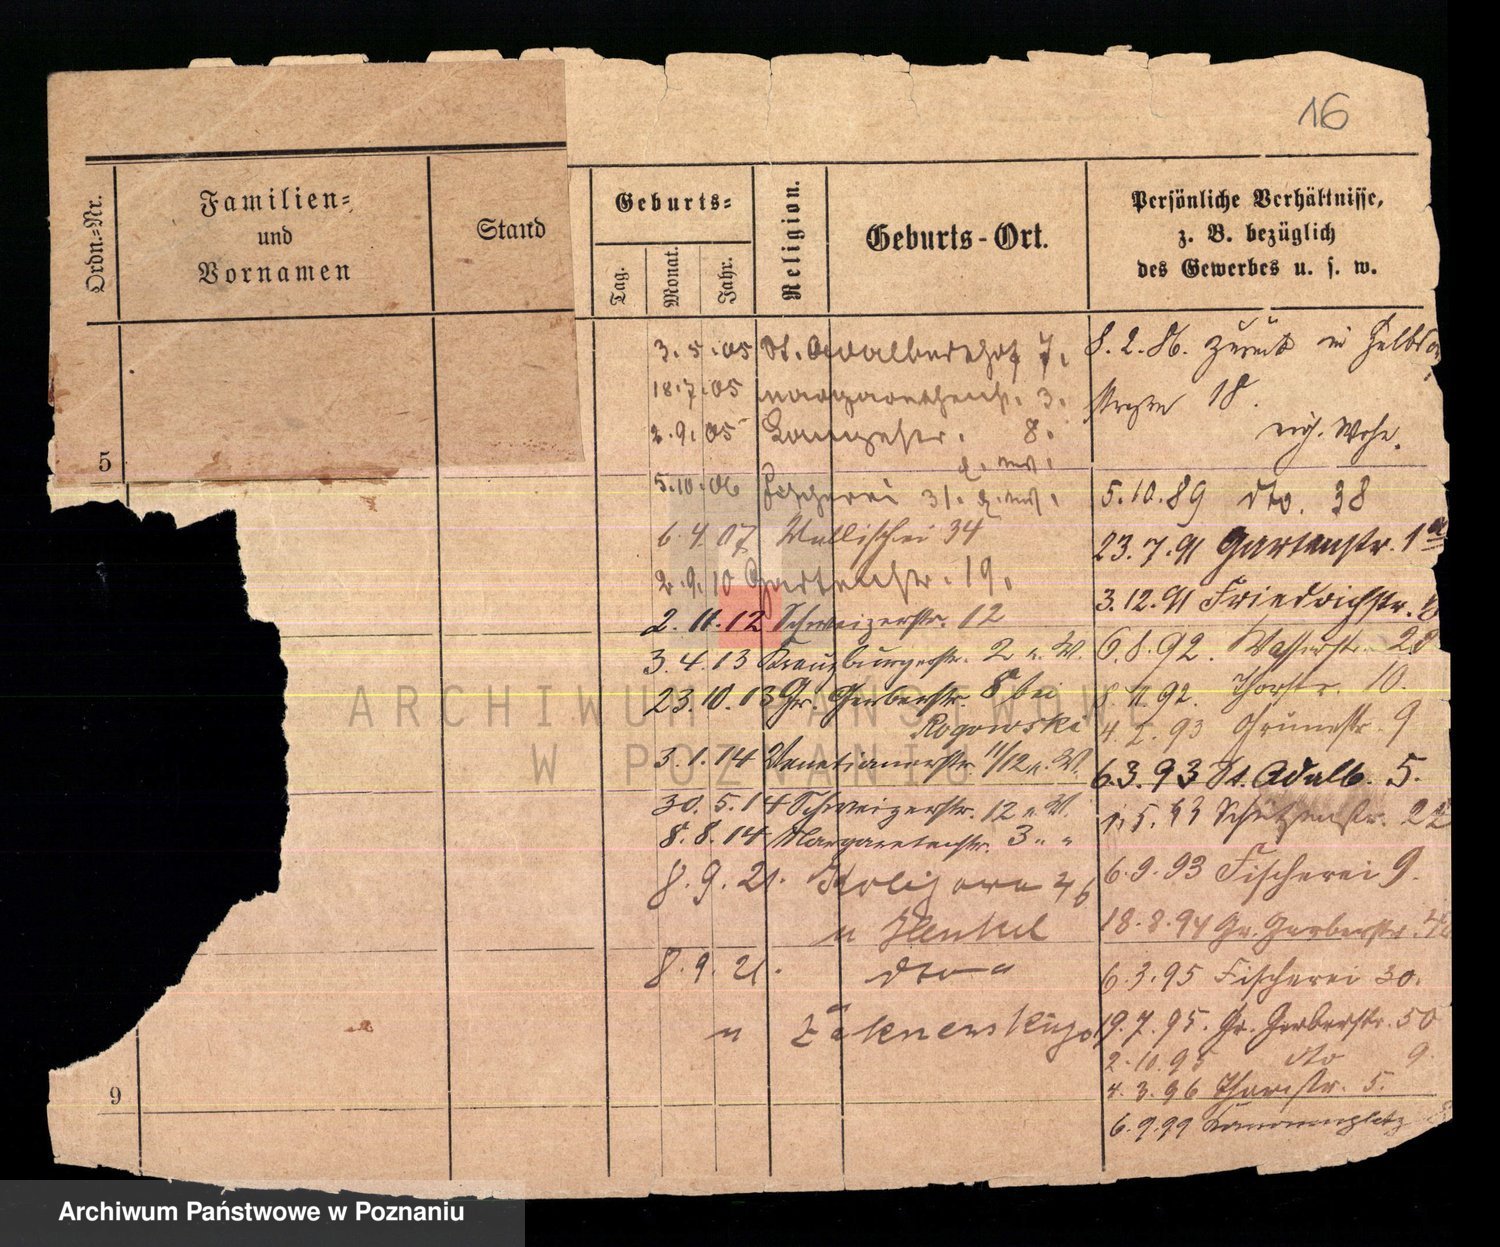 16
Ordn.-Nr.
Familien-
und
Vornamen
Stand
Geburts-
Tag.
Monat.
Jahr.
Religion.
Geburts-Ort.
Persönliche Verhältnisse,
z. B. bezüglich
des Gewerbes u. s. w.
3.5.05 St. Adalberthof 7.
18.7.05 Margarethenstr. 3.
2.9.05 8.
5
5.10.06 31.
6.4.07 Wallischei 34
2.9.10 Gartenstr. 19.
2.11.12 Schweizerstr. 12
3.4.13 Kreuzburgerstr. 2 u. W.
23.10.13 Gr. Gerberstr. 8 bei
Rogowski
3.1.14 Venetianerstr. 11/12 u. W.
30.5.14 Schweizerstr. 12 u. W.
8.8.14 Margaretenstr. 3 " "
8.9.21.
u Henkel
8.9.21. dto
u
9
8.2.86. zurück in
18.
5.10.89 dto. 38
23.7.91 Gartenstr. 1a
3.12.91 Friedrichstr.
6.8.92. Wasserstr. 28
8.11.92. Thorstr. 10.
93 Grünestr. 9
6.3.93 St. Adalb. 5.
1.5.93 Schützenstr. 22
6.9.93 Fischerei 9.
18.8.94 Gr. Gerberstr.
6.3.95 Fischerei 30.
19.7.95. Gr. Gerberstr. 50
2.10.95 dto 9.
4.3.96 Thorstr. 5.
6.9.99 Kanonenplatz
ARCHIWUM PAŃSTWOWE
W POZNANIU
Archiwum Państwowe w Poznaniu